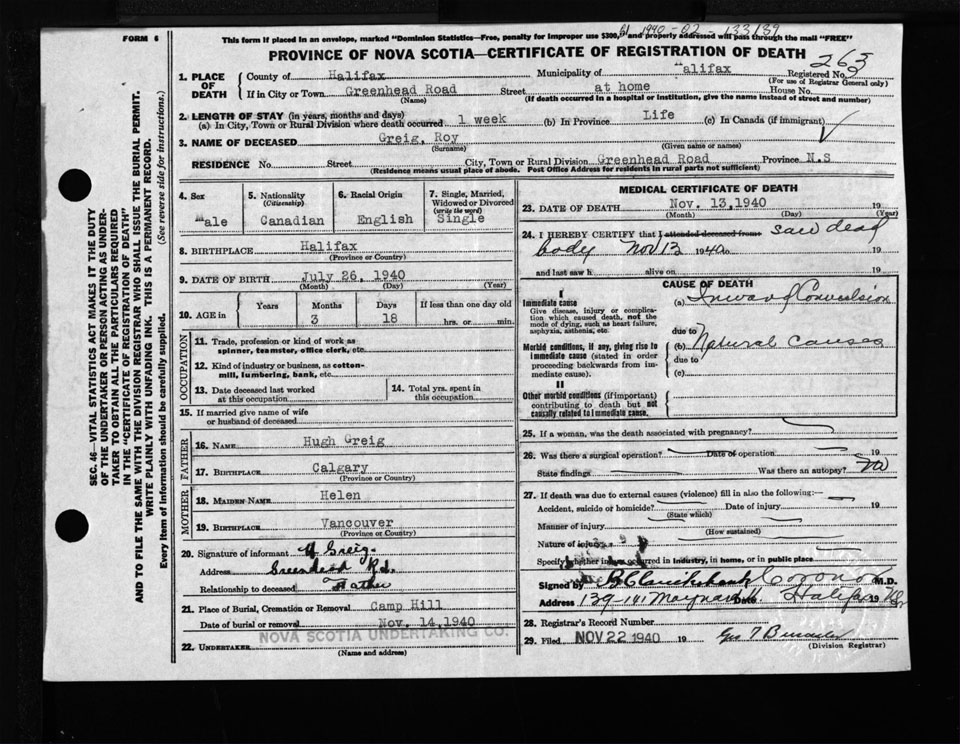 FORM 6
This form if placed in an envelope, marked "Dominion Statistics—Free, penalty for improper use $300," and properly addressed will pass through the mail "FREE"
1940-02-133139
PROVINCE OF NOVA SCOTIA—CERTIFICATE OF REGISTRATION OF DEATH
263
1. PLACE OF DEATH County of Halifax Municipality of Halifax Registered No.
(For use of Registrar General only)
If in City or Town Greenhead Road Street at home House No.
(Name) (If death occurred in a hospital or institution, give the name instead of street and number)
2. LENGTH OF STAY (in years, months and days)
(a) In City, Town or Rural Division where death occurred 1 week (b) In Province Life (c) In Canada (if immigrant)
3. NAME OF DECEASED Greig, Roy
(Surname) (Given name or names)
RESIDENCE No. Street City, Town or Rural Division Greenhead Road Province N.S
(Residence means usual place of abode. Post Office Address for residents in rural parts not sufficient)
4. Sex Male
5. Nationality (Citizenship) Canadian
6. Racial Origin English
7. Single, Married, Widowed or Divorced (write the word) Single
8. BIRTHPLACE Halifax
(Province or Country)
9. DATE OF BIRTH July 26, 1940
(Month) (Day) (Year)
10. AGE Years Months 3 Days 18 If less than one day old hrs. or min.
OCCUPATION
11. Trade, profession or kind of work as spinner, teamster, office clerk, etc.
12. Kind of industry or business, as cotton-mill, lumbering, bank, etc.
13. Date deceased last worked at this occupation
14. Total yrs. spent in this occupation
15. If married give name of wife or husband of deceased
FATHER
16. NAME Hugh Greig
17. BIRTHPLACE Calgary
(Province or Country)
MOTHER
18. MAIDEN NAME Helen
19. BIRTHPLACE Vancouver
(Province or Country)
20. Signature of informant H Greig
Address Greenhead Rd.
Relationship to deceased Father
21. Place of Burial, Cremation or Removal Camp Hill
Date of burial or removal Nov. 14, 1940
NOVA SCOTIA UNDERTAKING CO.
22. UNDERTAKER
(Name and address)
MEDICAL CERTIFICATE OF DEATH
23. DATE OF DEATH Nov. 13, 1940 19
(Month) (Day) (Year)
24. I HEREBY CERTIFY that I attended deceased from saw dead
body Nov 13 1940 19
and last saw h alive on 19
CAUSE OF DEATH
I
Immediate cause
Give disease, injury or complication which caused death, not the mode of dying, such as heart failure, asphyxia, asthenia, etc.
(a) Inward Convulsion
due to
Morbid conditions, if any, giving rise to immediate cause (stated in order proceeding backwards from immediate cause).
(b) Natural Causes
due to
(c)
II
Other morbid conditions (if important) contributing to death but not causally related to immediate cause.
25. If a woman, was the death associated with pregnancy?
26. Was there a surgical operation? Date of operation 19
State findings Was there an autopsy? No
27. If death was due to external causes (violence) fill in also the following:
Accident, suicide or homicide? Date of injury 19
(State which)
Manner of injury
(How sustained)
Nature of injury
Specify whether injury occurred in industry, in home, or in public place
Signed by Coroner M.D.
Address 139-141 Maynard St. Date Halifax 19 N.S.
28. Registrar's Record Number
29. Filed NOV 22 1940 19
(Division Registrar)
SEC. 46—VITAL STATISTICS ACT MAKES IT THE DUTY
OF THE UNDERTAKER OR PERSON ACTING AS UNDERTAKER TO OBTAIN ALL THE PARTICULARS REQUIRED
IN THE "CERTIFICATE OF REGISTRATION OF DEATH"
AND TO FILE THE SAME WITH THE DIVISION REGISTRAR WHO SHALL ISSUE THE BURIAL PERMIT.
WRITE PLAINLY WITH UNFADING INK. THIS IS A PERMANENT RECORD.
Every item of information should be carefully supplied. (See reverse side for instructions.)